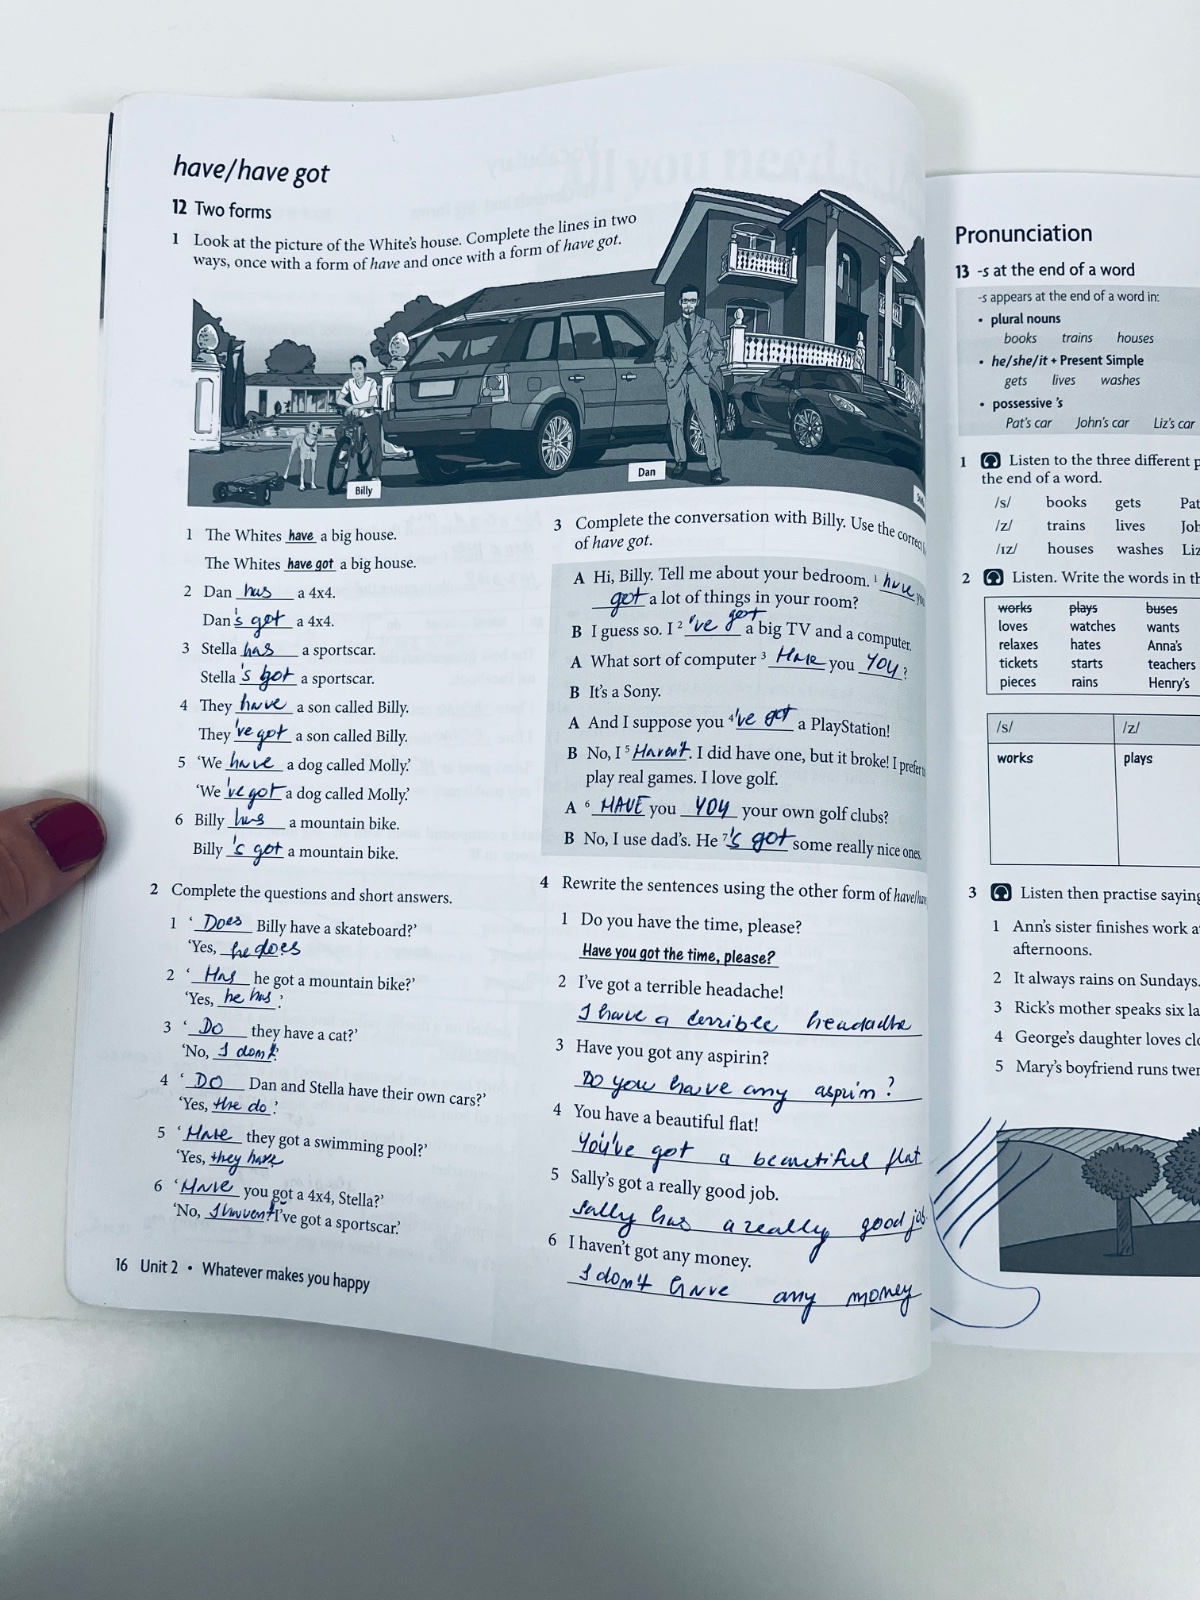 have/have got
12 Two forms
1 Look at the picture of the White's house. Complete the lines in two
ways, once with a form of have and once with a form of have got.
Billy
Dan
1 The Whites have a big house.
The Whites have got a big house.
2 Dan has a 4x4.
Dan's got a 4x4.
3 Stella has a sportscar.
Stella 's got a sportscar.
4 They have a son called Billy.
They 've got a son called Billy.
5 'We have a dog called Molly.'
'We 've got a dog called Molly.'
6 Billy has a mountain bike.
Billy 's got a mountain bike.
2 Complete the questions and short answers.
1 'Does Billy have a skateboard?'
'Yes, he does
2 'Has he got a mountain bike?'
'Yes, he has.'
3 'Do they have a cat?'
'No, I don't.'
4 'DO Dan and Stella have their own cars?'
'Yes, the do.'
5 'Have they got a swimming pool?'
'Yes, they have
6 'Have you got a 4x4, Stella?'
'No, I haven't I've got a sportscar.'
16 Unit 2 • Whatever makes you happy
3 Complete the conversation with Billy. Use the correct
of have got.
A Hi, Billy. Tell me about your bedroom. 1 have you
got a lot of things in your room?
B I guess so. I 2 've got a big TV and a computer.
A What sort of computer 3 Have you YOU?
B It's a Sony.
A And I suppose you 4 've got a PlayStation!
B No, I 5 Haven't. I did have one, but it broke! I prefer
play real games. I love golf.
A 6 HAVE you YOU your own golf clubs?
B No, I use dad's. He 7 's got some really nice ones.
4 Rewrite the sentences using the other form of have/have
1 Do you have the time, please?
Have you got the time, please?
2 I've got a terrible headache!
I have a terrible headadhe
3 Have you got any aspirin?
Do you have any aspirin?
4 You have a beautiful flat!
You've got a beautiful flat
5 Sally's got a really good job.
Sally has a really good job
6 I haven't got any money.
I don't have any money
Pronunciation
13 -s at the end of a word
-s appears at the end of a word in:
• plural nouns
books trains houses
• he/she/it + Present Simple
gets lives washes
• possessive 's
Pat's car John's car Liz's car
1 Listen to the three different p
the end of a word.
/s/ books gets Pat
/z/ trains lives Joh
/ɪz/ houses washes Liz
2 Listen. Write the words in th
works plays buses
loves watches wants
relaxes hates Anna's
tickets starts teachers
pieces rains Henry's
/s/ /z/
works plays
3 Listen then practise saying
1 Ann's sister finishes work a
afternoons.
2 It always rains on Sundays.
3 Rick's mother speaks six la
4 George's daughter loves clo
5 Mary's boyfriend runs twen